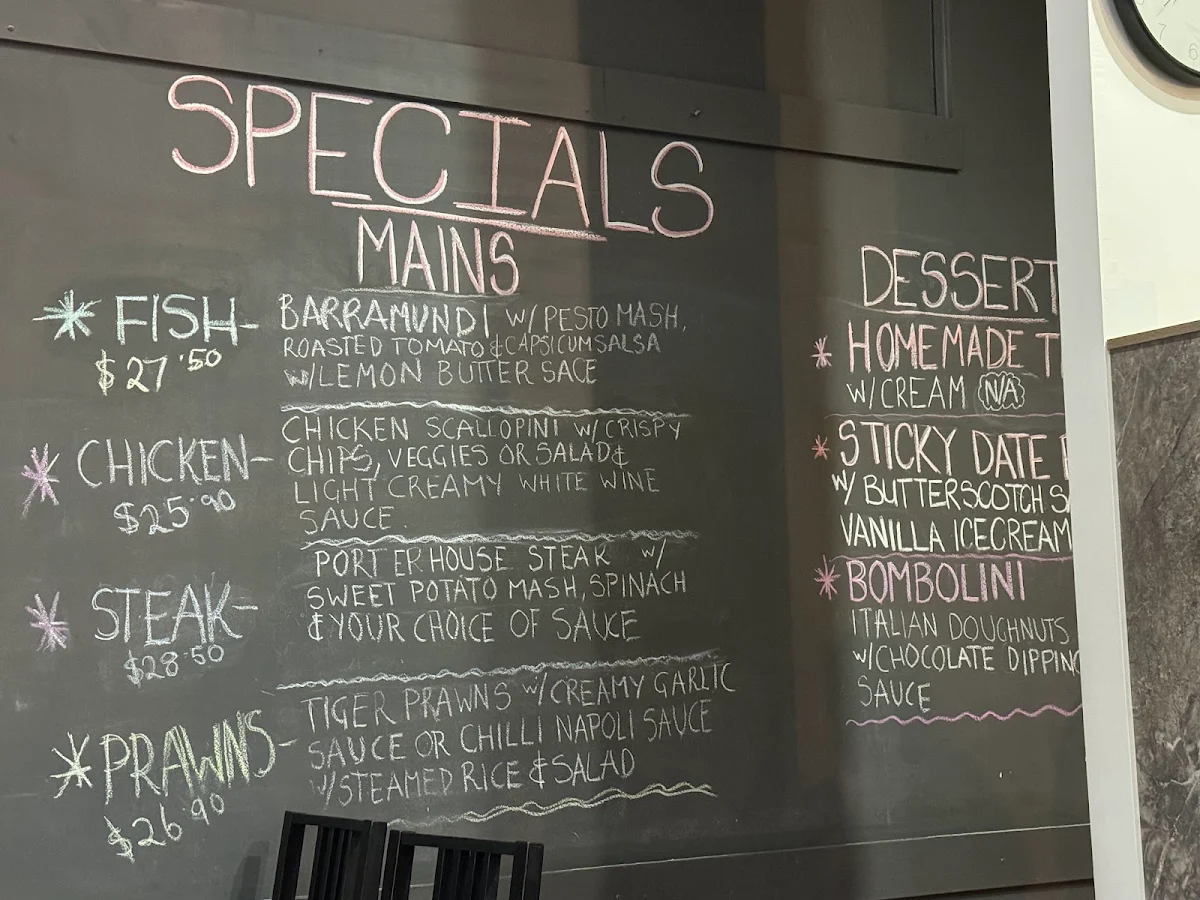 SPECIALS
MAINS
* FISH-
$27.50
BARRAMUNDI W/ PESTO MASH,
ROASTED TOMATO & CAPSICUM SALSA
W/LEMON BUTTER SACE
* CHICKEN-
$25.90
CHICKEN SCALLOPINI W/ CRISPY
CHIPS, VEGGIES OR SALAD &
LIGHT CREAMY WHITE WINE
SAUCE.
* STEAK-
$28.50
PORTERHOUSE STEAK W/
SWEET POTATO MASH, SPINACH
& YOUR CHOICE OF SAUCE
* PRAWNS-
$26.90
TIGER PRAWNS W/CREAMY GARLIC
SAUCE OR CHILLI NAPOLI SAUCE
W/STEAMED RICE & SALAD
DESSERT
* HOMEMADE
W/CREAM N/A
* STICKY DATE
W/ BUTTERSCOTCH
VANILLA ICECREAM
* BOMBOLINI
ITALIAN DOUGHNUTS
W/CHOCOLATE DIPPING
SAUCE